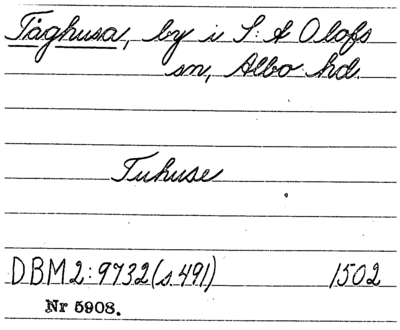 Tåghusa, by i S:t Olofs
sn, Albo hd.
Tuhuse
DBM2:9732(s.491) 1502
Nr 5908.